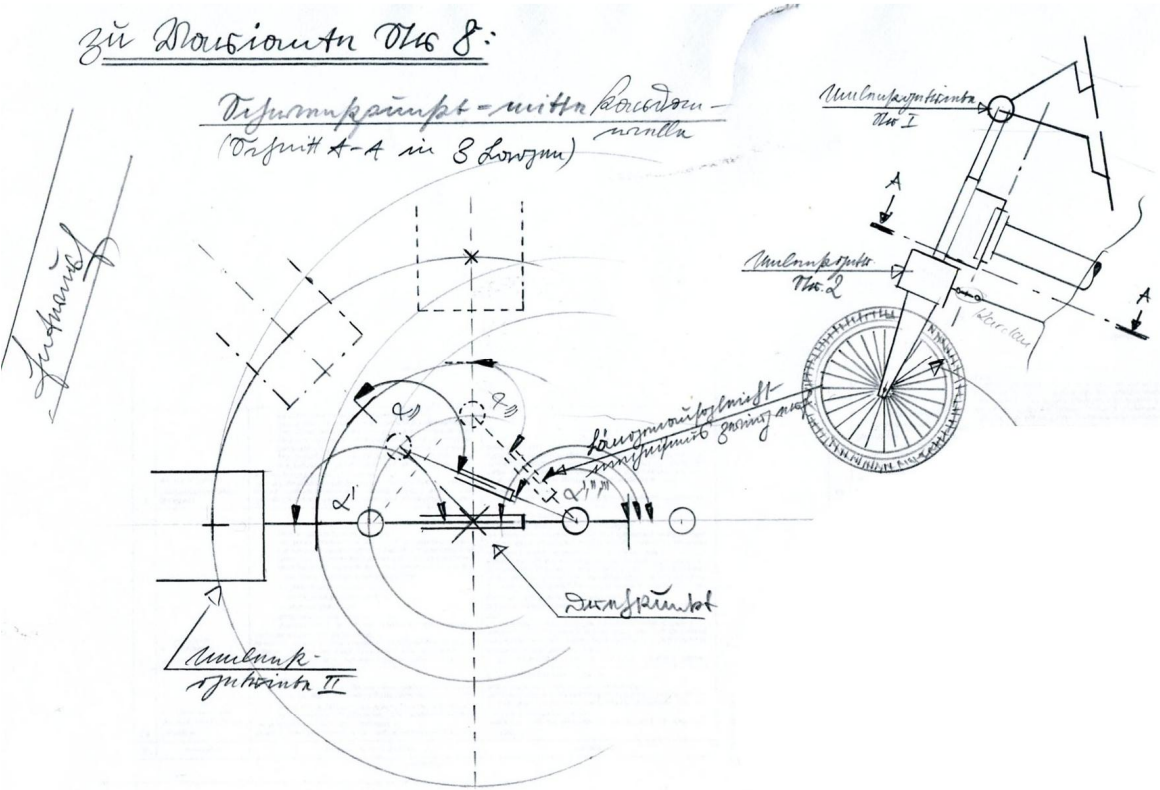 zu Variante Nr 8:
Schwenkpunkt-mitte Kardan-
welle
(Schnitt A-A in 3 Lagen)
Entwurf
Umlenkgetriebe
Nr I
A
Umlenkgetr.
Nr. 2
A
Kardan
Längenausgleich
α''
α''
α'
α','','''
Drehpunkt
Umlenk-
getriebe II